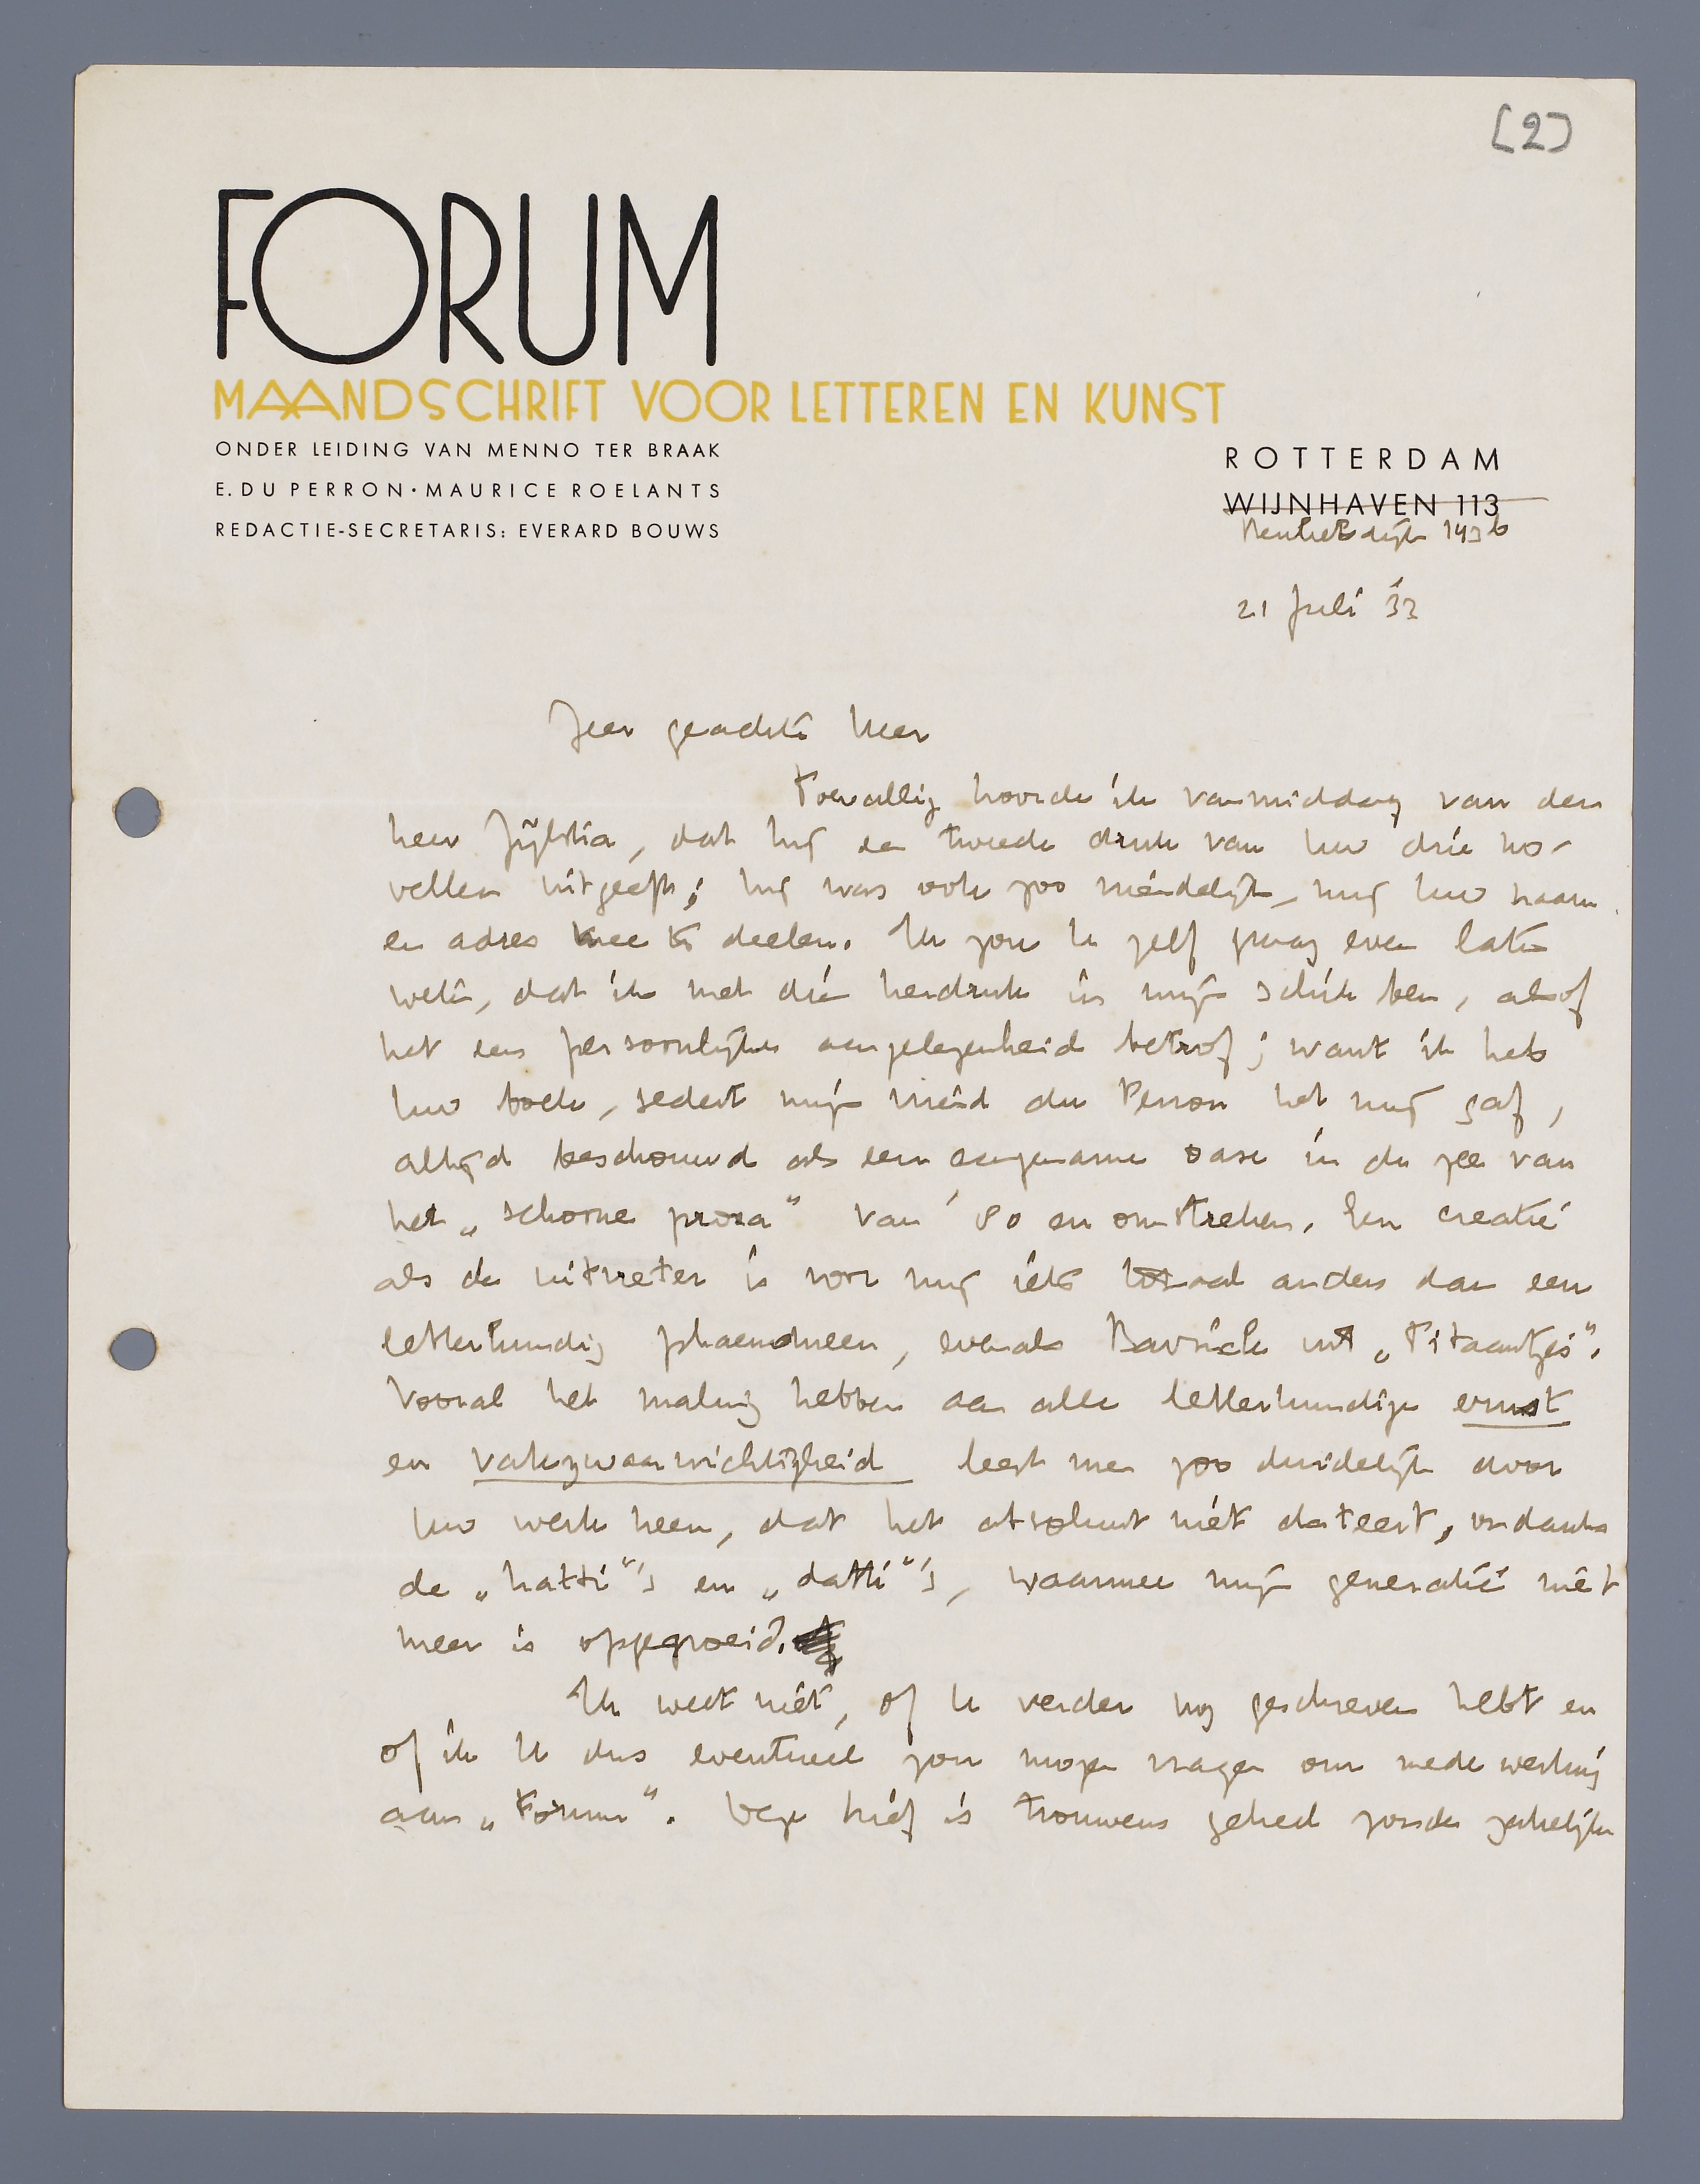 [2]
FORUM
MAANDSCHRIFT VOOR LETTEREN EN KUNST
ONDER LEIDING VAN MENNO TER BRAAK
E. DU PERRON · MAURICE ROELANTS
REDACTIE-SECRETARIS: EVERARD BOUWS
ROTTERDAM
WIJNHAVEN 113
Kralingsche 143b
21 Juli '32
Zeer geachte heer
Toevallig hoorde ik vanmiddag van den
heer Zijlstra, dat hij een tweede druk van Uw drie no-
vellen uitgeeft; hij was ook zoo vriendelijk, mij Uw naam
en adres mee te deelen. Ik zou U zelf graag even laten
weten, dat ik met dien herdruk in mijn schik ben, alsof
het een persoonlijke aangelegenheid betrof; want ik heb
Uw boek, sedert mijn vriend du Perron het mij gaf,
altijd beschouwd als een aangename oase in de zee van
het „schoone proza" van '80 en omstreken. Een creatie
als de uitvreter is voor mij iets totaal anders dan een
letterkundig phaenomeen, evenals Bavinck uit „Titaantjes".
Vooral het maling hebben aan alle letterkundige ernst
en vakzwaarwichtigheid leest men zoo duidelijk door
Uw werk heen, dat het absoluut niet dateert, ondanks
de „hatti"'s en „datti"'s, waarmee mijn generatie niet
meer is opgegroeid.
Ik weet niet, of U verder nog geschreven hebt en
of ik U dus eventueel zou mogen vragen om medewerking
aan „Forum". Deze brief is trouwens geheel zonder zakelijke